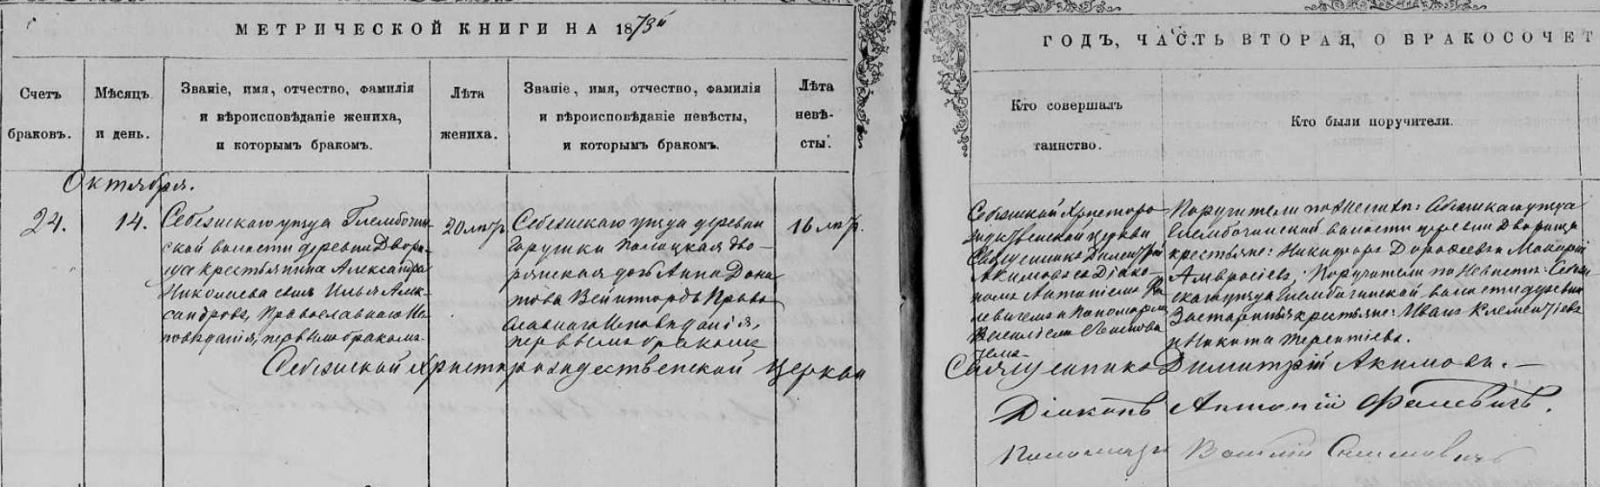 МЕТРИЧЕСКОЙ КНИГИ НА 1873й
ГОДЪ, ЧАСТЬ ВТОРАЯ, О БРАКОСОЧЕТ
Счетъ браковъ.
Мѣсяцъ и день.
Званіе, имя, отчество, фамилія
и вѣроисповѣданіе жениха,
и которымъ бракомъ.
Лѣта
жениха.
Званіе, имя, отчество, фамилія
и вѣроисповѣданіе невѣсты,
и которымъ бракомъ.
Лѣта
невѣ-
сты.
Кто совершалъ
таинство.
Кто были поручители.
Октября.
24.
14.
Себежскаго уѣзда Глембочин-
ской волости деревни Двори-
ща крестьянина Александра
Николаева сынъ Илья Алек-
сандровъ, Православнаго Ис-
повѣданія, первымъ бракомъ
20 лѣтъ
Себежскаго уѣзда деревни
Полоцкая дво-
рянская дочь Анна Дона-
това Право-
славнаго Исповѣданія,
первымъ бракомъ
16 лѣтъ
Себежской Христоро-
ждественской церкви
Священникъ Димитрій
Акимовъ съ Діако-
номъ Антоніемъ Фа-
левичемъ и Пономаремъ
Василіемъ
Поручители по женихѣ: Себежскаго уѣзда
Глембочинской волости деревни Дворища
крестьяне: Никифоръ Дорофеевъ и Макарій
Амвросіевъ. Поручители по невѣстѣ: Себеж-
скаго уѣзда Глембочинской волости деревни
крестьяне: Иванъ Климентіевъ
и Никита Терентіевъ.
Себежской Христорождественской Церкви
Священникъ Димитрій Акимовъ.
Діаконъ Антоній Фалевичъ.
Пономарь Василій